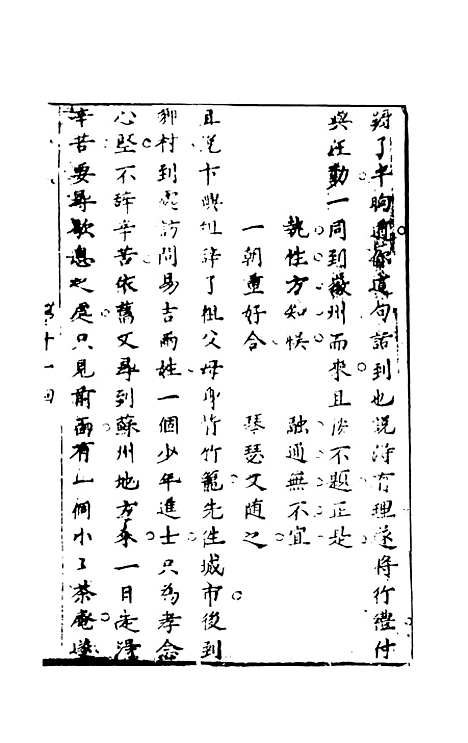 了半晌道你這句話到也說得有理遂將行禮付
與汪勤一同到徽州而來且後不題正是
執性方知悮　融通無不宜
一朝重好合　琴瑟又随之
且說卞興祖辞了祖父母身竹竹籠先徃城市後到
鄉村到處訪問易吉两姓一個少年進士只為孝念
心堅不辞辛苦依舊又尋到蘇州地方來一日走得
辛苦要尋歇息之處只見前面有一個小小茶庵遂
第十一回